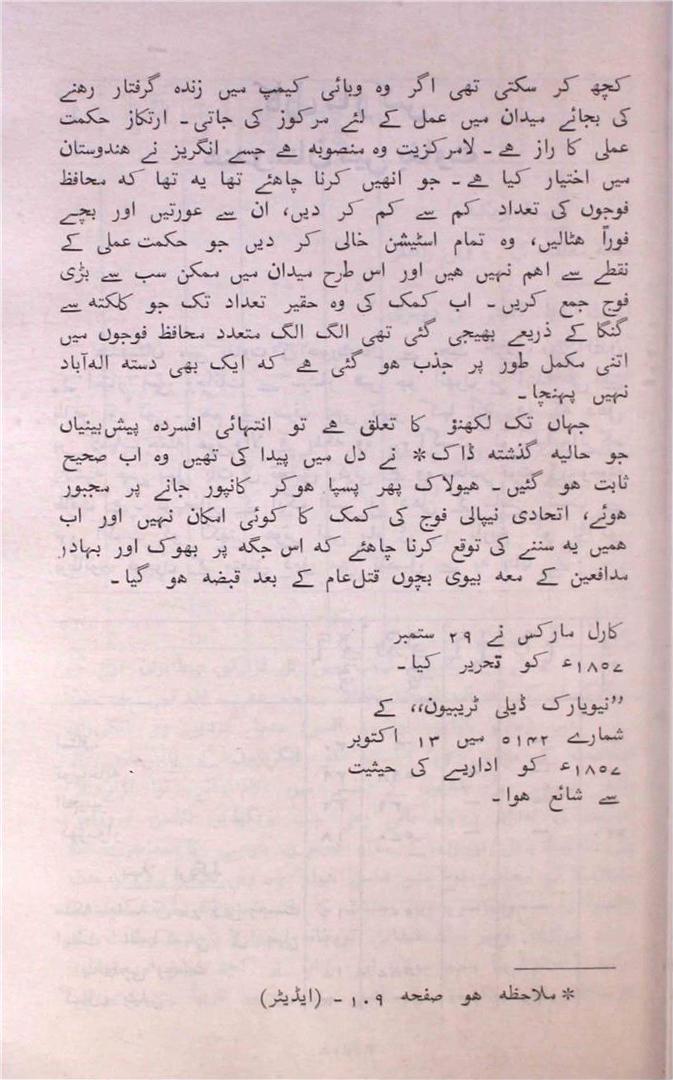 کچھ کر سکتی تھی اگر وہ وبائی کیمپ میں زندہ گرفتار رهنے
کی بجائے میدان میں عمل کے لئے مرکوز کی جاتی۔ ارتکاز حکمت
عملی کا راز ہے۔ لامرکزیت وہ منصوبہ ہے جسے انگریز نے ہندوستان
میں اختیار کیا ہے۔ جو انھیں کرنا چاہئے تھا یہ تھا کہ محافظ
فوجوں کی تعداد کم سے کم کر دیں، ان سے عورتیں اور بچے
فوراً ہٹالیں، وہ تمام اسٹیشن خالی کر دیں جو حکمت عملی کے
نقطے سے اہم نہیں ہیں اور اس طرح میدان میں ممکن سب سے بڑی
فوج جمع کریں۔ اب کمک کی وہ حقیر تعداد تک جو کلکتہ سے
گنگا کے ذریعے بھیجی گئی تھی الگ الگ متعدد محافظ فوجوں میں
اتنی مکمل طور پر جذب ہو گئی ہے کہ ایک بھی دستہ الہ‌آباد
نہیں پہنچا۔
جہاں تک لکھنؤ کا تعلق ہے تو انتہائی افسردہ پیش‌بینیاں
جو حالیہ گذشتہ ڈاک* نے دل میں پیدا کی تھیں وہ اب صحیح
ثابت ہو گئیں۔ ہیولاک پھر پسپا ہوکر کانپور جانے پر مجبور
ہوئے، اتحادی نیپالی فوج کی کمک کا کوئی امکان نہیں اور اب
ہمیں یہ سننے کی توقع کرنا چاہئے کہ اس جگہ پر بھوک اور بہادر
مدافعین کے معہ بیوی بچوں قتل‌عام کے بعد قبضہ ہو گیا۔
کارل مارکس نے ۲۹ ستمبر
۱۸۵۷ء کو تحریر کیا۔
”نیویارک ڈیلی ٹریبیون،، کے
شمارے ۵۱۴۲ میں ۱۳ اکتوبر
۱۸۵۷ء کو اداریے کی حیثیت
سے شائع ہوا۔
* ملاحظہ ہو صفحہ ۱۰۹۔ (ایڈیٹر)